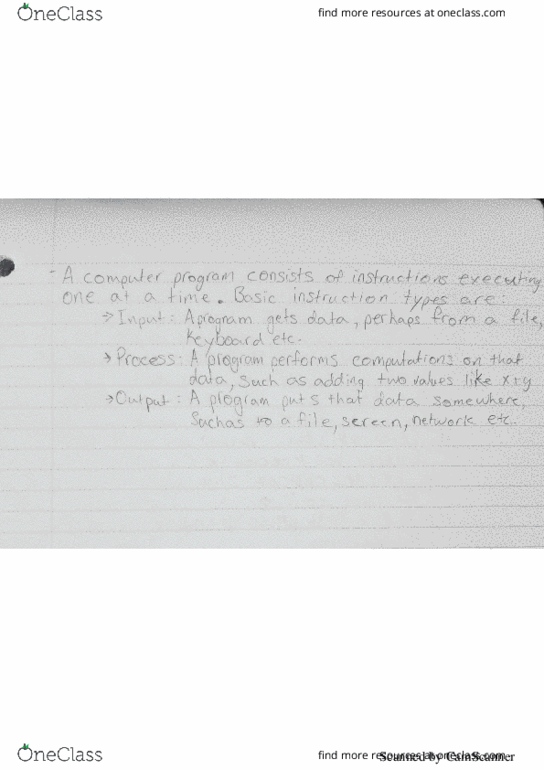 OneClass
find more resources at oneclass.com
- A computer program consists of instructions executing
one at a time. Basic instruction types are:
→ Input: A program gets data, perhaps from a file,
Keyboard etc.
→ Process: A program performs computations on that
data, such as adding two values like x+y
→ Output: A program puts that data somewhere,
Such as a file, screen, network etc.
OneClass
find more resources at oneclass.com
Scanned by CamScanner